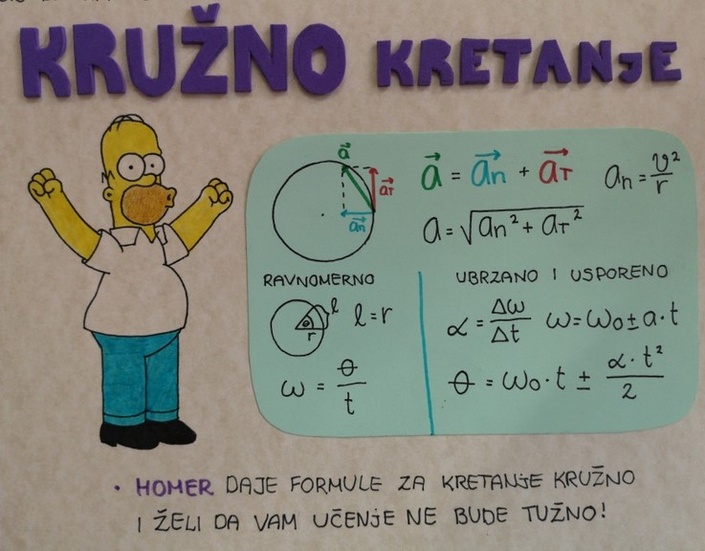 KRUŽNO KRETANJE
a⃗
a⃗T
a⃗n
a⃗ = a⃗n + a⃗T   an = v²/r
a = √(an² + aT²)
RAVNOMERNO
l   l = r
θ
r
ω = θ/t
UBRZANO I USPORENO
α = Δω/Δt   ω = ω0 ± a · t
θ = ω0 · t ± α · t²/2
• HOMER DAJE FORMULE ZA KRETANJE KRUŽNO
I ŽELI DA VAM UČENJE NE BUDE TUŽNO!